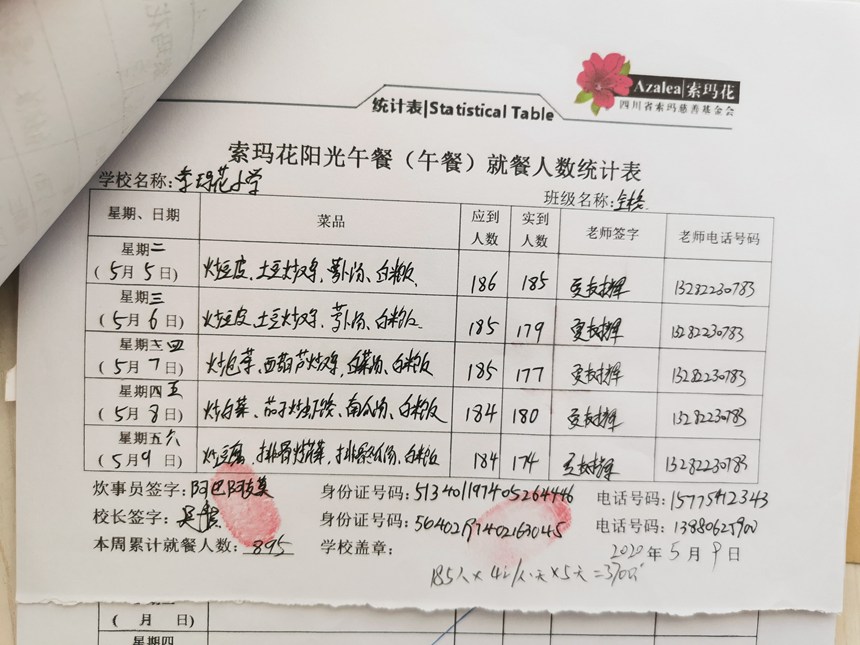 Azalea|索玛花
四川省索玛慈善基金会
统计表|Statistical Table
索玛花阳光午餐（午餐）就餐人数统计表
学校名称：索玛花小学 班级名称：全校
星期、日期 菜品 应到人数 实到人数 老师签字 老师电话号码
星期二
（5月5日） 炒豆皮、土豆炒鸡、萝卜汤、白米饭 186 185 13282230783
星期三
（5月6日） 炒豆皮、土豆炒鸡、萝卜汤、白米饭 185 179 13282230783
星期四
（5月7日） 西葫芦炒鸡、白菜汤、白米饭 185 177 13282230783
星期四五
（5月8日） 炒白菜、南瓜汤、白米饭 184 180 13282230783
星期五六
（5月9日） 白米饭 184 174 13282230783
炊事员签字：阿巴阿 身份证号码：513401197405264446 电话号码：15775412343
校长签字： 身份证号码： 电话号码：13880625900
本周累计就餐人数：895 学校盖章： 2020年5月9日
185人×4元/人·天×5天=3700
（ 月 日）
星期四